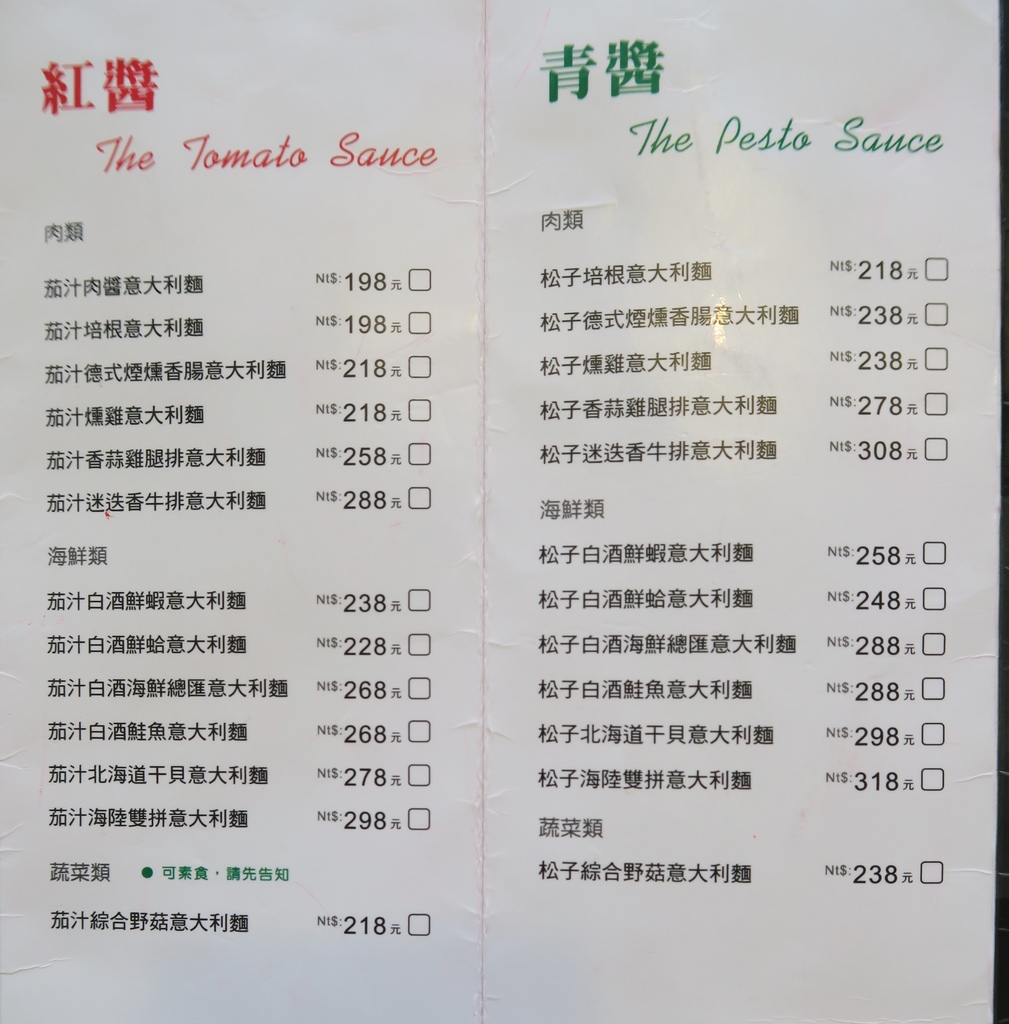 紅醬
The Tomato Sauce
肉類
茄汁肉醬意大利麵 Nt$:198元
茄汁培根意大利麵 Nt$:198元
茄汁德式煙燻香腸意大利麵 Nt$:218元
茄汁燻雞意大利麵 Nt$:218元
茄汁香蒜雞腿排意大利麵 Nt$:258元
茄汁迷迭香牛排意大利麵 Nt$:288元
海鮮類
茄汁白酒鮮蝦意大利麵 Nt$:238元
茄汁白酒鮮蛤意大利麵 Nt$:228元
茄汁白酒海鮮總匯意大利麵 Nt$:268元
茄汁白酒鮭魚意大利麵 Nt$:268元
茄汁北海道干貝意大利麵 Nt$:278元
茄汁海陸雙拼意大利麵 Nt$:298元
蔬菜類 ● 可素食，請先告知
茄汁綜合野菇意大利麵 Nt$:218元
青醬
The Pesto Sauce
肉類
松子培根意大利麵 Nt$:218元
松子德式煙燻香腸意大利麵 Nt$:238元
松子燻雞意大利麵 Nt$:238元
松子香蒜雞腿排意大利麵 Nt$:278元
松子迷迭香牛排意大利麵 Nt$:308元
海鮮類
松子白酒鮮蝦意大利麵 Nt$:258元
松子白酒鮮蛤意大利麵 Nt$:248元
松子白酒海鮮總匯意大利麵 Nt$:288元
松子白酒鮭魚意大利麵 Nt$:288元
松子北海道干貝意大利麵 Nt$:298元
松子海陸雙拼意大利麵 Nt$:318元
蔬菜類
松子綜合野菇意大利麵 Nt$:238元